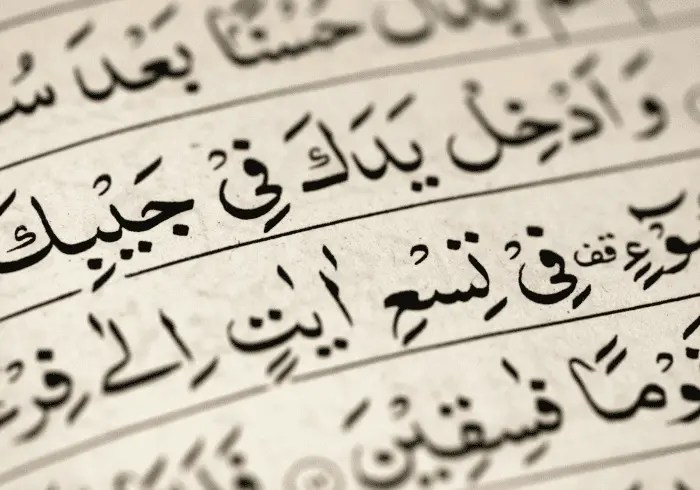 بَدَّلَ حُسْنًۢا بَعْدَ
وَاَدْخِلْ يَدَكَ فِيْ جَيْبِكَ
سُوْٓءٍ قف فِيْ تِسْعِ اٰيٰتٍ اِلٰى فِرْعَ
قَوْمًا فٰسِقِيْنَ